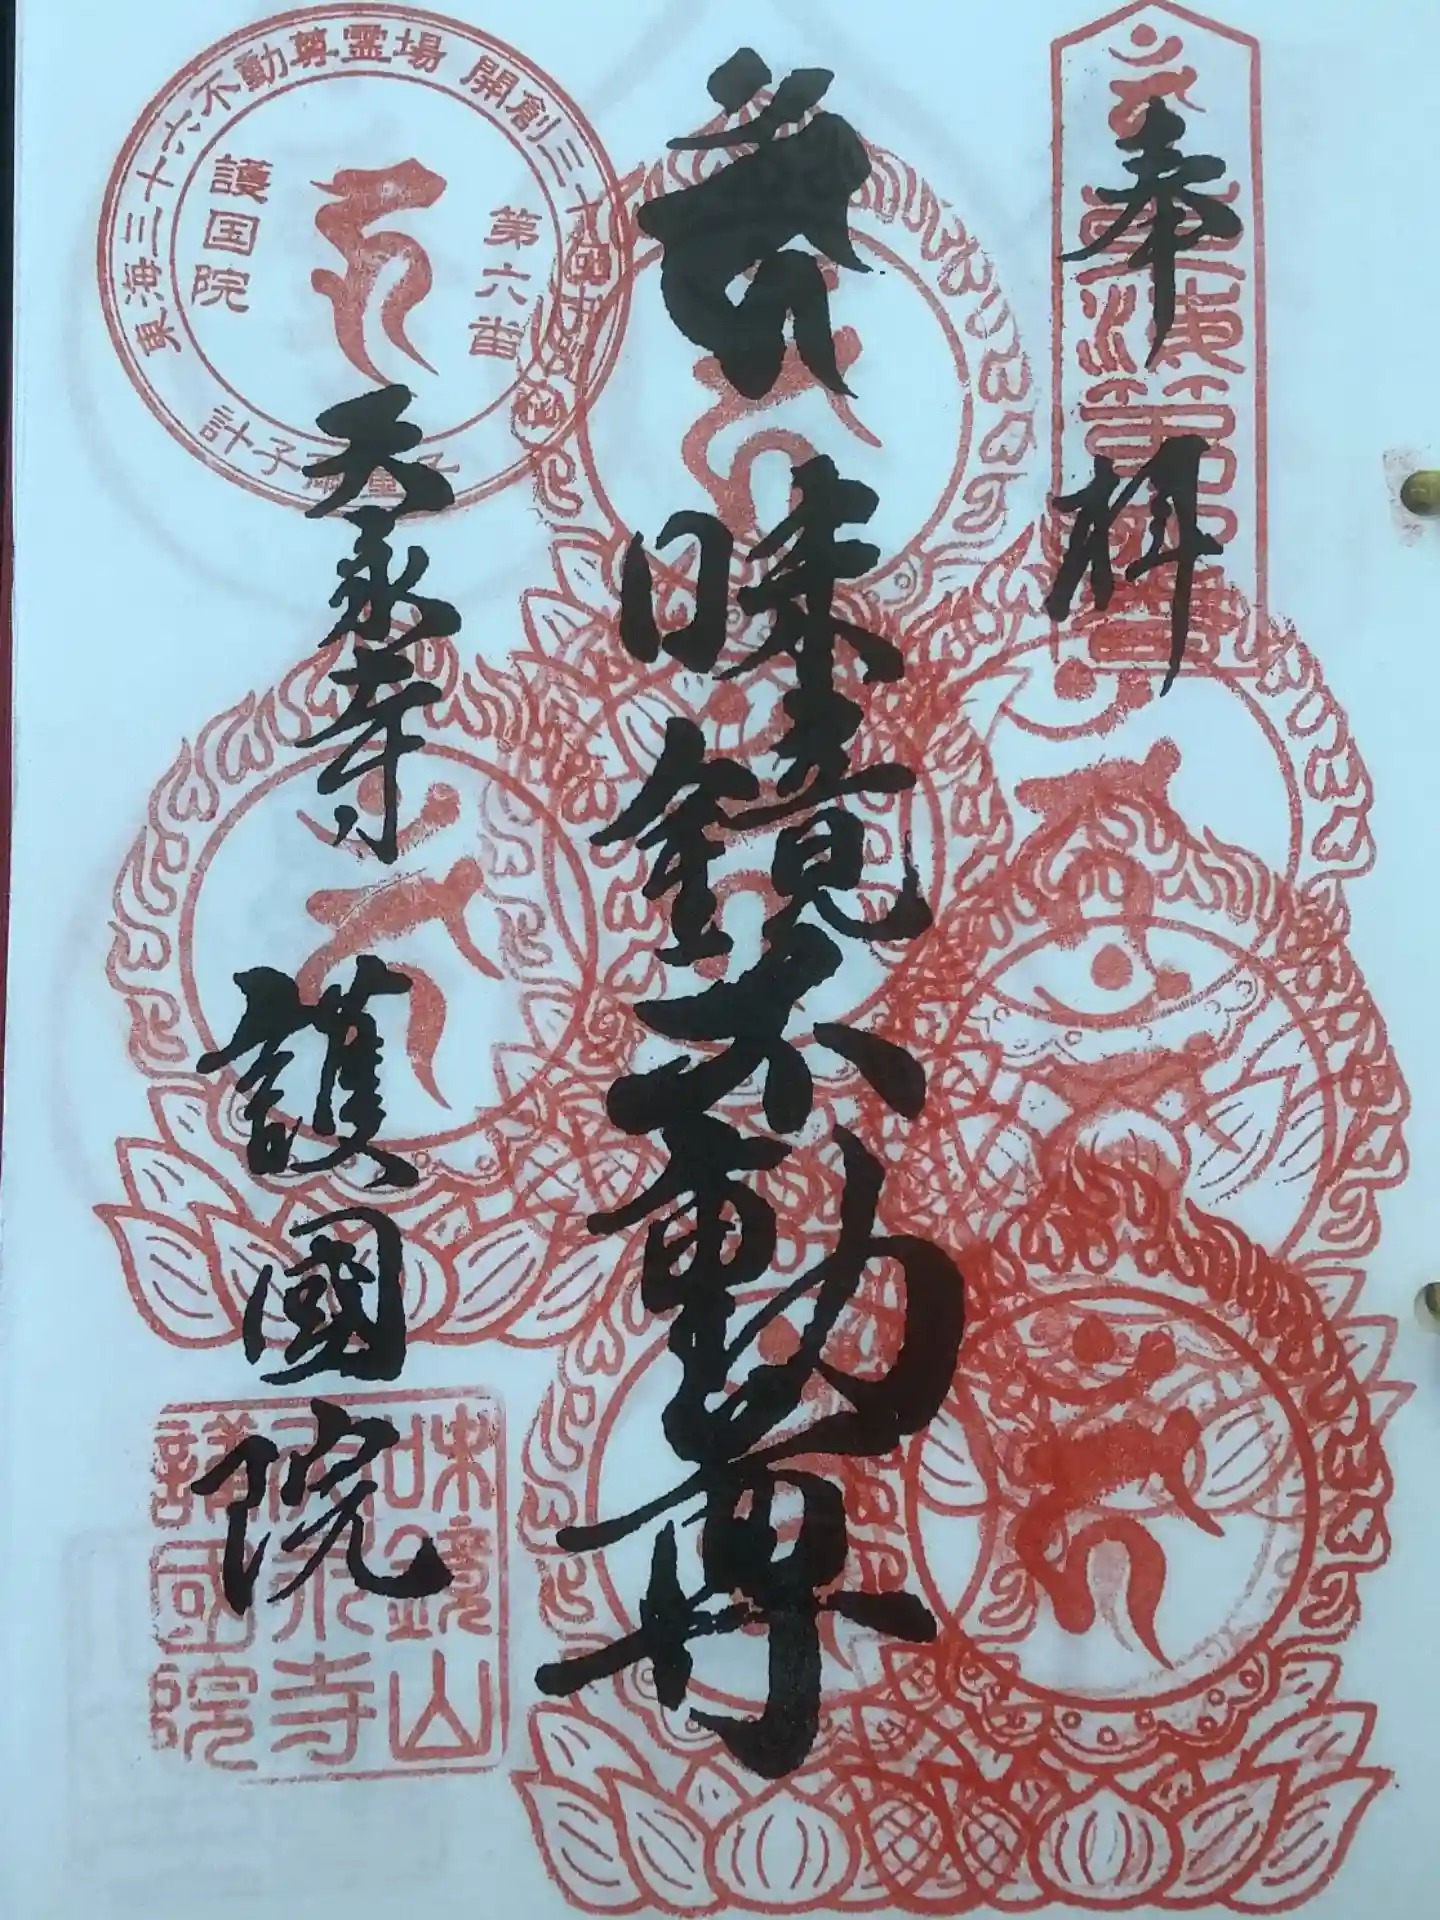 奉拝
味鏡不動尊
天永寺
護國院
東海三十六不動尊霊場 開創三十
第六番
護国院
計子
味鏡山
天永寺
護國院